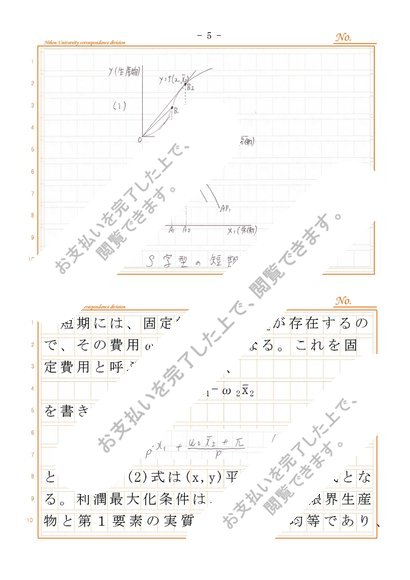 - 5 -
Nihon University correspondence division
No.
Y(生産物)
y=f(x₁, x̄₂)
B₂
(1)
B₁
0
お支払いを完了した上で、
閲覧できます。
AP₁
A₁ A₂
X₁(労働)
S字型の短期
お支払いを完了した上で、閲覧できます。
correspondence division
No.
短期には、固定
が存在するの
で、その費用
なる。これを固
定費用と呼
、
₁-ω₂x̄₂
を書き
x₁ + (ω₂x̄₂ + π)/p
と
(2)式は(x,y)平
とな
る。利潤最大化条件は
限界生産
物と第1要素の実質
均等であり、
お支払いを完了した上で、
閲覧できます。